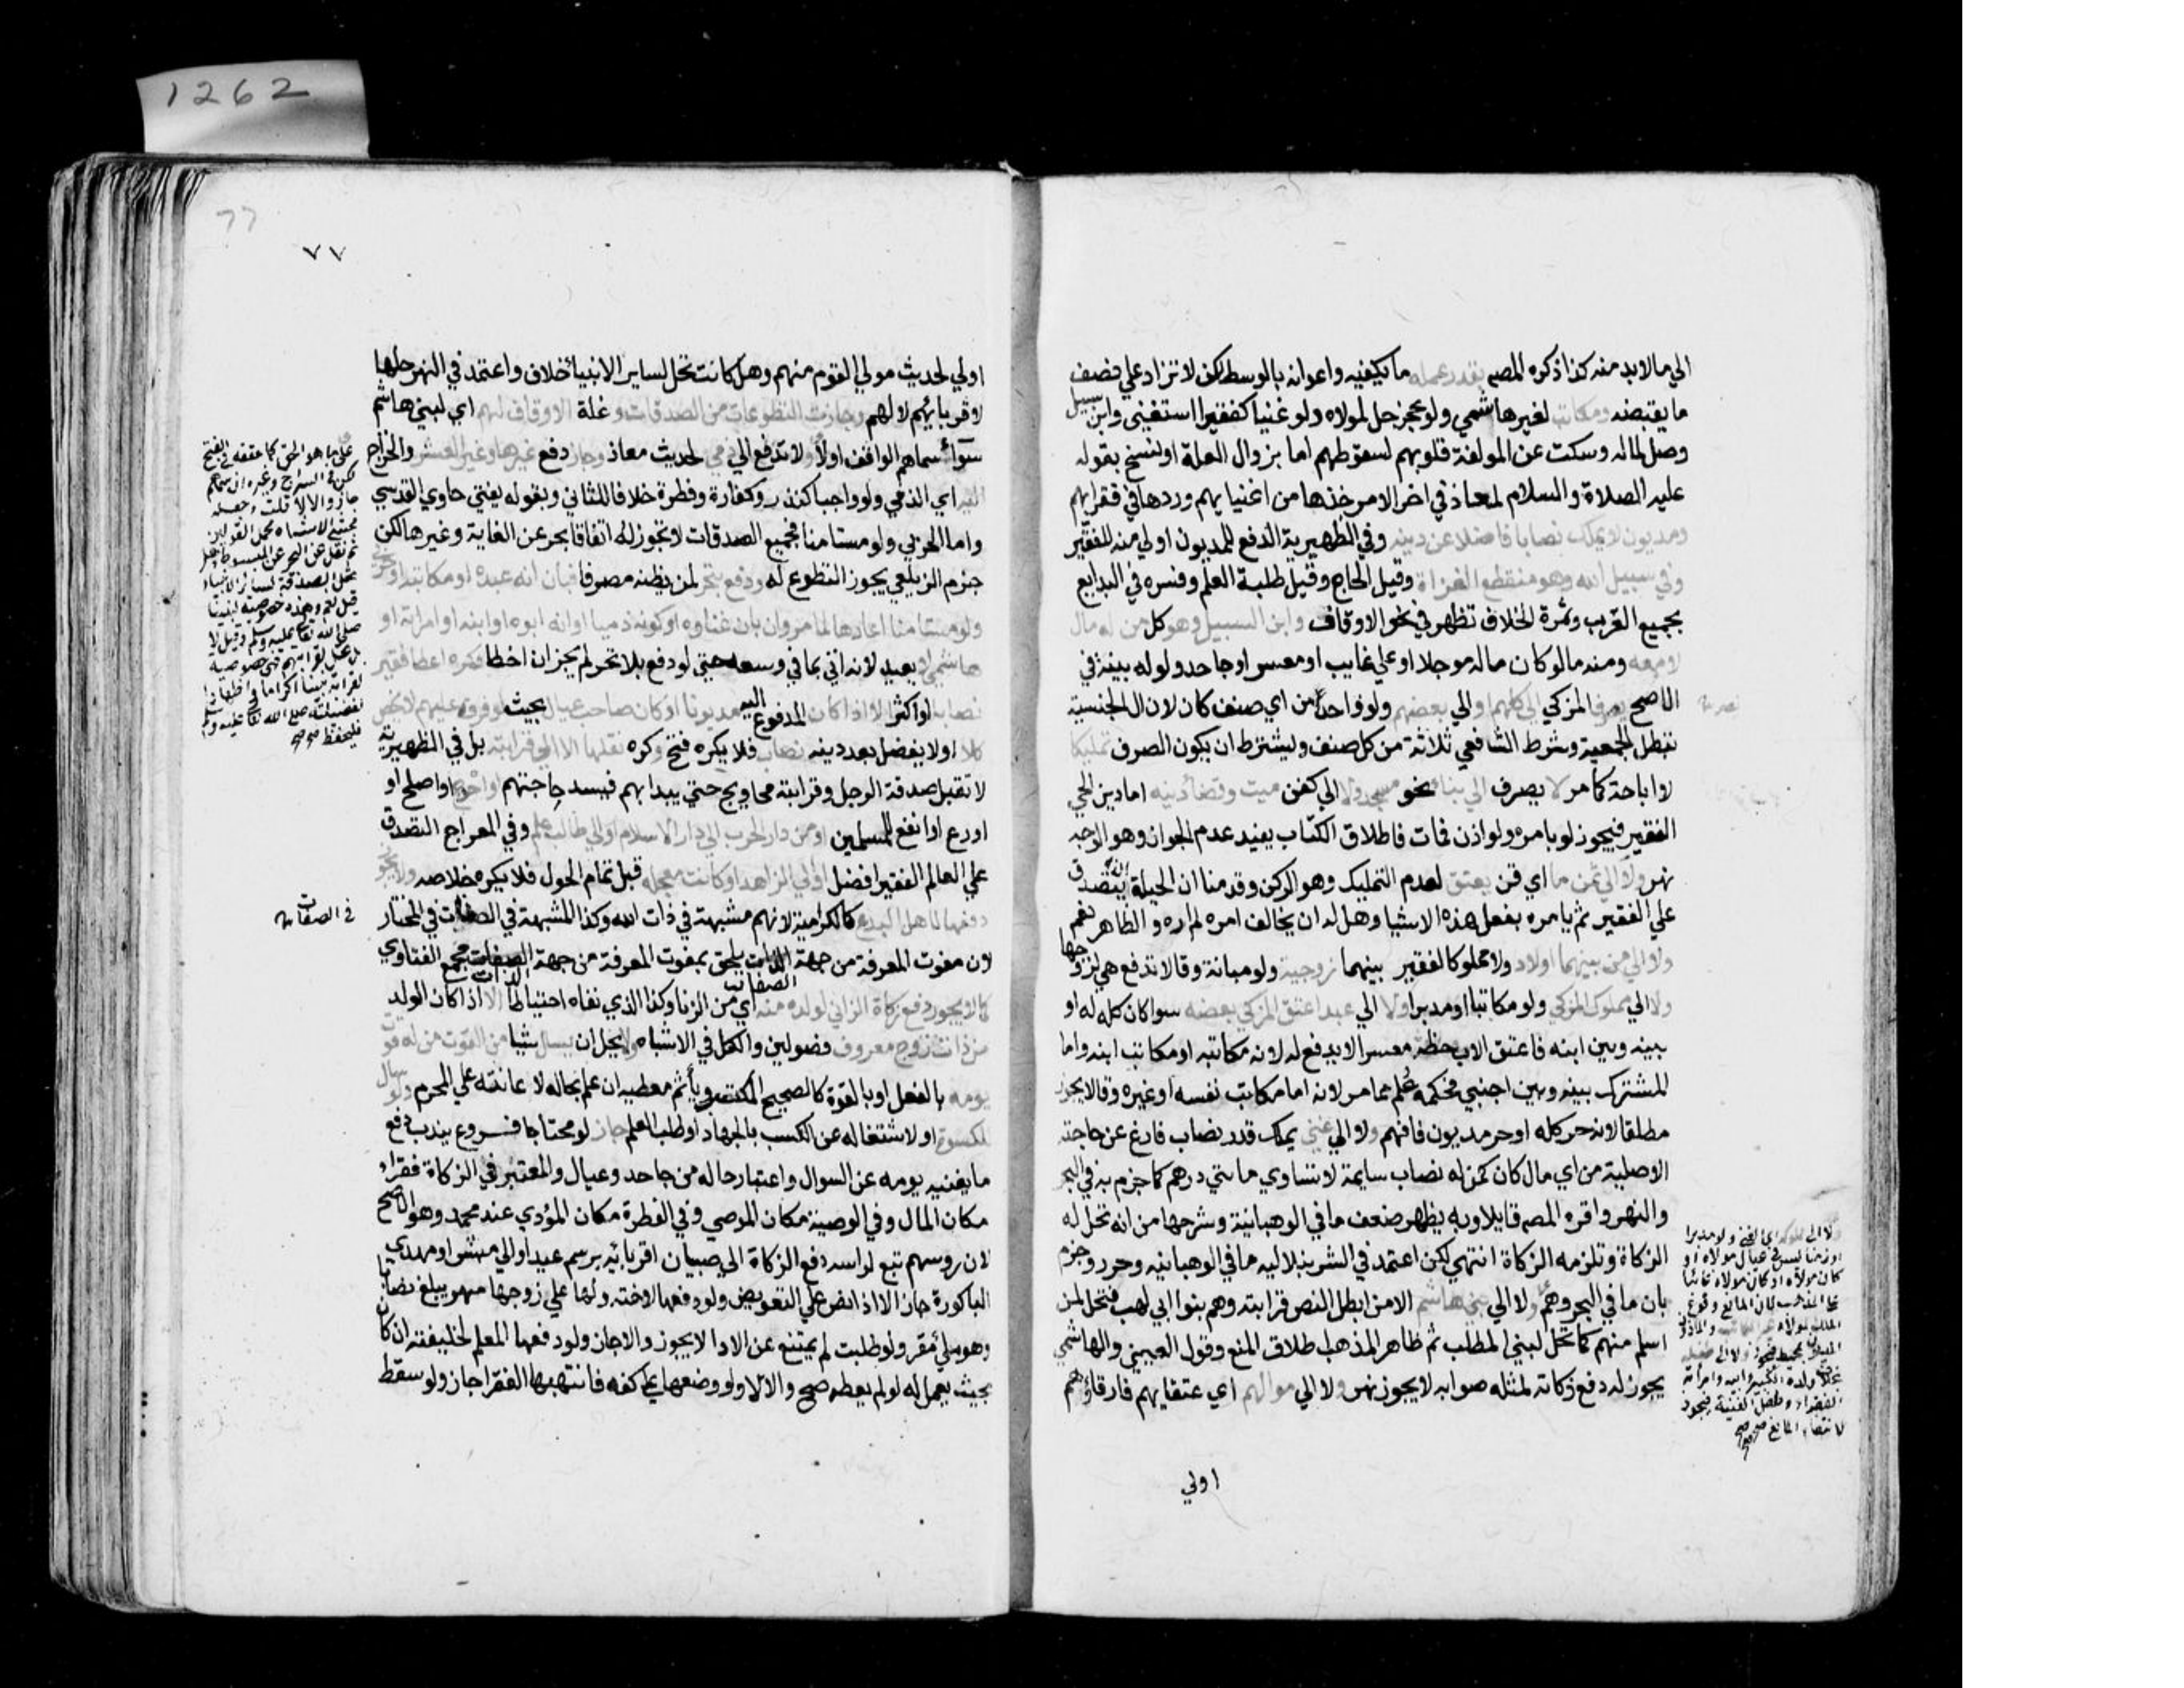 1262
الي مالابد منه كذا ذكره المصه بقدر عمله ما يكفيه واعوانه بالوسط لكن لا تزاد علي نصف
ما يقبضه ومكاتب لغير هاشمي ولو عجز حل لمولاه ولو غنيا كفقير استغني وابن سبيل
وصل لماله وسكت عن المولفة قلوبهم لسقوطهم اما بزوال العلة او نسخ بقوله
عليه الصلاة والسلام لمعاذ في اخر الامر خذها من اغنيايهم وردها في فقرايهم
ومديون لا يملك نصابا فاضلا عن دينه وفي الظهيرية الدفع للمديون اولي منه للفقير
وفي سبيل الله وهو منقطع الغزاة وقيل الحاج وقيل طلبة العلم وفسره في البدايع
بجميع القرب وثمرة الخلاف تظهر في نحو الاوقاف وابن السبيل وهو كل من له مال
لا معه ومنه مالو كان ماله موجلا او علي غايب او معسر او جاحد ولو له بينة في
الاصح يصرف المزكي الي كلهم او الي بعضهم ولو واحدا من اي صنف كان لان ال الجنسية
تبطل الجمعية وشرط الشافعي ثلاثة من كل صنف ويشترط ان يكون الصرف تمليكا
لا اباحة كما مر لا يصرف الي بناء نحو مسجد ولا الي كفن ميت وقضاء دينه اما دين الحي
الفقير فيجوز لو بامره ولو اذن فمات فاطلاق الكتاب يفيد عدم الجواز وهو الوجه
نهر ولا الي ثمن ما اي قن يعتق لعدم التمليك وهو الركن وقدمنا ان الحيلة ان يتصدق
علي الفقير ثم يامره بفعل هذه الاشيا وهل له ان يخالف امره لم اره والظاهر نعم
ولا الي من بينهما اولاد ولو مملوكا لفقير بينهما زوجية ولو مبانة وقالا تدفع هي لزوجها
ولا الي مملوك المزكي ولو مكاتبا او مدبرا ولا الي عبد اعتق المزكي بعضه سوا كان كله له او
بينه وبين ابنه فاعتق الاب حظه معسرا لا يدفع له لانه مكاتبه او مكاتب ابنه واما
المشترك بينه وبين اجنبي فحكمه علم مما مر لانه اما مكاتب نفسه او غيره وقالا يجوز
مطلقا لانه حر كله او حر مديون فافهم ولا الي غني يملك قدر نصاب فارغ عن حاجته
الاصلية من اي مال كان كمن له نصاب سايمة لا تساوي مايتي درهم كما جزم به في البحر
والنهر واقره المصه قايلا وبه يظهر ضعف ما في الوهبانية وشرحها من انه تحل له
الزكاة وتلزمه الزكاة انتهي لكن اعتمد في الشرنبلاليه ما في الوهبانيه وحرر وجزم
بان ما في البحر وهم ولا الي بني هاشم الا من ابطل النص قرابته وهم بنوا ابي لهب فتحل لمن
اسلم منهم كما تحل لبني المطلب ثم ظاهر المذهب اطلاق المنع وقول العيني والهاشمي
يجوز له دفع زكاته لمثله صوابه لا يجوز نهر ولا الي مواليهم اي عتقايهم فارقاؤهم
اولي
ولا الي مملوكه اي الغني ولو مدبرا
او زمنا ليس في عيال مولاه او
كان مولاه غايبا
علي المذهب لان المانع وقوع
الملك لمولاه غير المكاتب والماذون
المديون بمحيط فيجوز ولا الي طفله
بخلاف ولده الكبير وابيه وامراته
الفقراء وطفل الغنية فيجوز
لانتفاء المانع صح صح
77
٧٧
اولي لحديث مولي القوم منهم وهل كانت تحل لساير الانبيا خلاف واعتمد في النهر حلها
لاقربايهم لا لهم وجازت التطوعات من الصدقات وغلة الاوقاف لهم اي لبني هاشم
سوآء سماهم الواقف اولا ولا تدفع الي ذمي لحديث معاذ وجاز دفع غيرها وغير العشر والخراج
اليه اي الذمي ولو واجبا كنذر وكفارة وفطرة خلافا للثاني وبقوله يفتي حاوي القدسي
واما الحربي ولو مستامنا فجميع الصدقات لا تجوز له اتفاقا بحر عن الغاية وغيرها لكن
جزم الزيلعي يجوز التطوع له ودفع بتحر لمن يظنه مصرفا فبان انه عبده او مكاتبه او حربي
ولو مستامنا اعادها لما مر وان بان غناوه او كونه ذميا او انه ابوه او ابنه او امراته او
هاشمي لا يعيد لانه اتي بما في وسعه حتي لو دفع بلا تحر لم يجز ان اخطا وكره اعطا فقير
نصابا او اكثر الا اذا كان المدفوع اليه مديونا او كان صاحب عيال بحيث لو فرقه عليهم لا يخص
كلا او لا يفضل بعد دينه نصاب فلا يكره فتح وكره نقلها الا الي قرابته بل في الظهيرية
لا تقبل صدقة الرجل وقرابته محاويج حتي يبدا بهم فيسد حاجتهم او احوج او اصلح او
اورع او انفع للمسلمين او من دار الحرب الي دار الاسلام او الي طالب علم وفي المعراج التصدق
علي العالم الفقير افضل او الي الزهاد او كانت معجله قبل تمام الحول فلا يكره خلاصه ولا يجوز
دفعها لاهل البدع كالكرامية لانهم مشبهة في ذات الله وكذا المشبهة في الصفات في المختار
لان مفوت المعرفة من جهة الذات يلحق بمفوت المعرفة من جهة الصفات مجمع الفتاوي
كما لا يجوز دفع زكاة الزاني لولده منه اي من الزنا وكذا الذي نفاه احتياطا الا اذا كان الولد
من ذات زوج معروف فصولين والكل في الاشباه ولا يحل ان يسال شيا من القوت من له قوت
يومه بالفعل او بالقوة كالصحيح المكتسب وياثم معطيه ان علم بحاله لاعانته علي المحرم ولو سال
للكسوة او لاشتغاله عن الكسب بالجهاد او طلب العلم جاز لو محتاجا فسروع يندب دفع
ما يغنيه يومه عن السوال واعتبار حاله من حاجة وعيال والمعتبر في الزكاة فقراء
مكان المال وفي الوصية مكان الموصي وفي الفطرة مكان المؤدي عند محمد وهو الاصح
لان روسهم تبع لراسه دفع الزكاة الي صبيان اقربائه برسم عيد او الي مبشر او مهدي
الباكورة جاز الا اذا نص علي التعويض ولو دفعها لاخته ولها علي زوجها مهر يبلغ نصابا
وهو ملئ مقر ولو طلبت لم يمتنع عن الادا لا يجوز والا جاز ولو دفعها المعلم لخليفته ان كان
بحيث يعمل له لو لم يعطه صح والا لا ولو وضعها علي كفه فانتهبها الفقرا جاز ولو سقط
علي ما هو الحق كما حققه في الفتح
لكن في السراج وغيره ان سماهم
جاز والا لا قلت وجعله
محشي الاشباه محمل القولين
ثم نقل عن البحر عن المبسوط هل
تحل الصدقة لسائر الانبياء
قيل نعم وهذه خصوصية لنبينا
صلي الله تعالي عليه وسلم وقيل لا
بل تحل لقرابتهم فهي خصوصية
لقرابة نبينا اكراما واظهارا
لفضيلته صلي الله تعالي عليه وسلم
فليحفظ صح صح
في الصفات